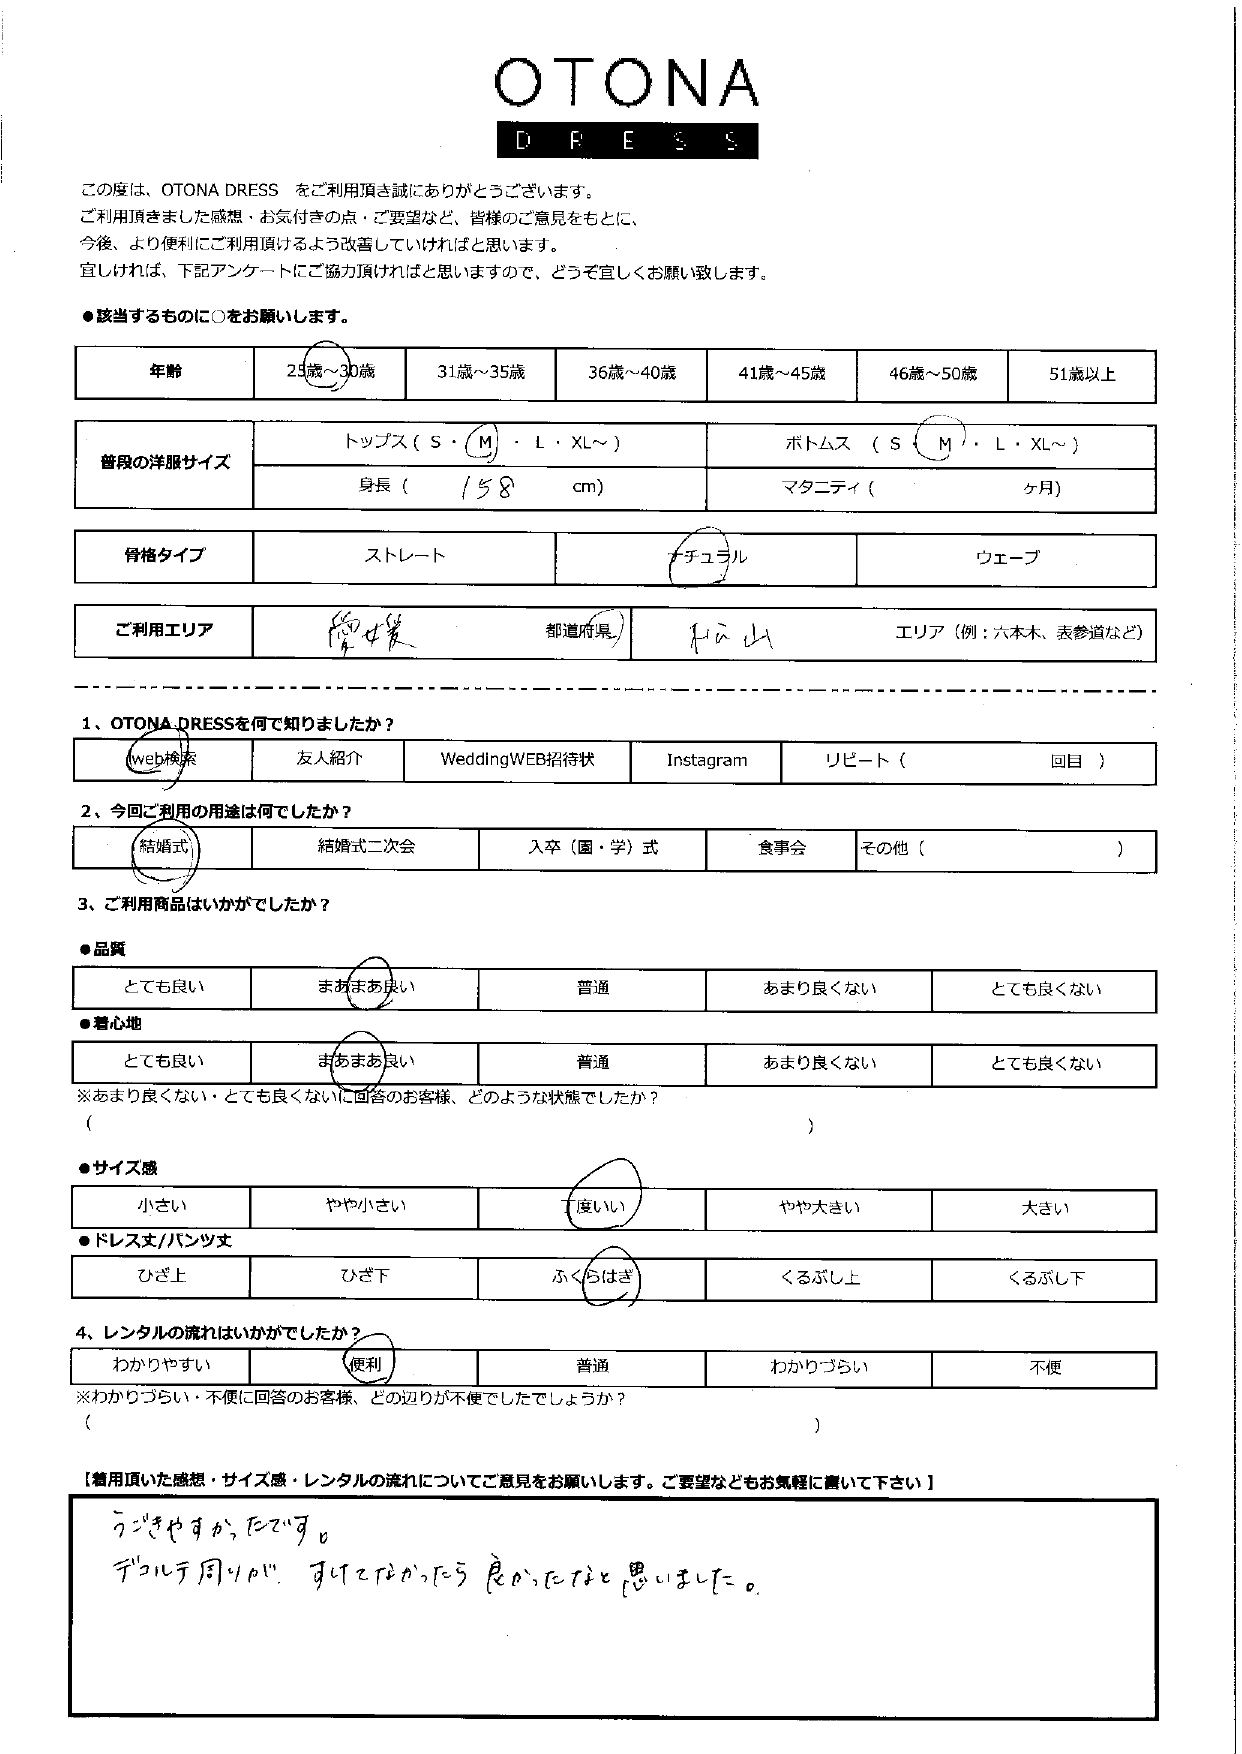 OTONA
DRESS
この度は、OTONA DRESS をご利用頂き誠にありがとうございます。
ご利用頂きました感想・お気付きの点・ご要望など、皆様のご意見をもとに、
今後、より便利にご利用頂けるよう改善していければと思います。
宜しければ、下記アンケートにご協力頂ければと思いますので、どうぞ宜しくお願い致します。
●該当するものに○をお願いします。
年齢 25歳～30歳 31歳～35歳 36歳～40歳 41歳～45歳 46歳～50歳 51歳以上
普段の洋服サイズ トップス ( S ・ M ・ L ・ XL～ ) ボトムス ( S ・ M ・ L ・ XL～ )
身長 ( 158 cm) マタニティ ( ヶ月)
骨格タイプ ストレート ナチュラル ウェーブ
ご利用エリア 愛媛 都道府県 松山 エリア（例：六本木、表参道など）
1、OTONA DRESSを何で知りましたか？
web検索 友人紹介 WeddingWEB招待状 Instagram リピート ( 回目 )
2、今回ご利用の用途は何でしたか？
結婚式 結婚式二次会 入卒（園・学）式 食事会 その他 ( )
3、ご利用商品はいかがでしたか？
●品質
とても良い まあまあ良い 普通 あまり良くない とても良くない
●着心地
とても良い まあまあ良い 普通 あまり良くない とても良くない
※あまり良くない・とても良くないに回答のお客様、どのような状態でしたか？
( )
●サイズ感
小さい やや小さい 丁度いい やや大きい 大きい
●ドレス丈/パンツ丈
ひざ上 ひざ下 ふくらはぎ くるぶし上 くるぶし下
4、レンタルの流れはいかがでしたか？
わかりやすい 便利 普通 わかりづらい 不便
※わかりづらい・不便に回答のお客様、どの辺りが不便でしたでしょうか？
( )
【着用頂いた感想・サイズ感・レンタルの流れについてご意見をお願いします。ご要望などもお気軽に書いて下さい】
うごきやすかったです。
デコルテ周りが すけてなかったら 良かったなと思いました。